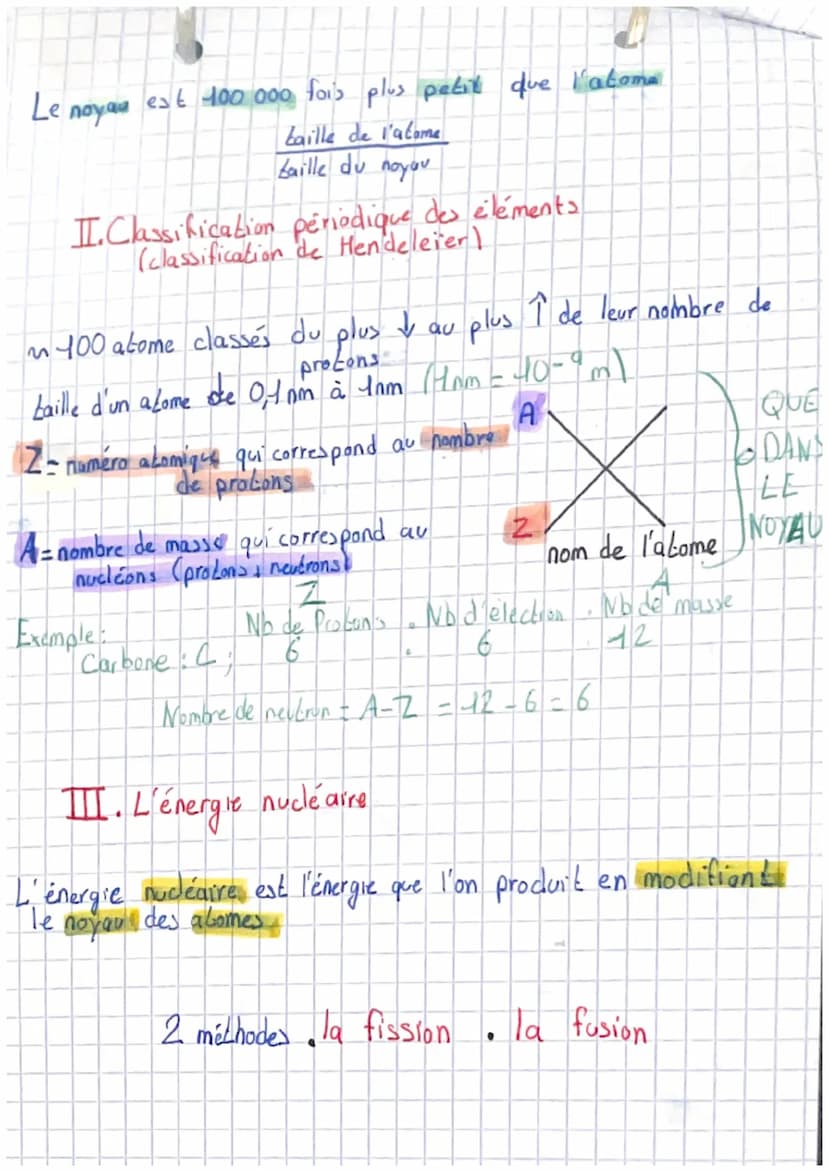 Le noyau est 100 000 fois plus petit que l'atome
taille de l'atome
taille du noyau
II. Classification périodique des éléments
(classification de Hendeleïer)
~ 100 atome classés du plus ↓ au plus ↑ de leur nombre de
protons
taille d'un atome de 0,1 nm à 1nm (1nm = 10-9 m)
Z = numéro atomique qui correspond au nombre
de protons
A = nombre de masse qui correspond au
nucléons (protons + neutrons)
A
Z
nom de l'atome
QUE
DANS
LE
NOYAU
Z A
Exemple: Nb de Protons . Nb d'élection . Nb de masse
Carbone : C ; 6 . 6 . 12
Nombre de neutron = A-Z = 12 - 6 = 6
III. L'énergie nucléaire
L'énergie nucléaire est l'énergie que l'on produit en modifiant
le noyau des atomes.
2 méthodes . la fission . la fusion